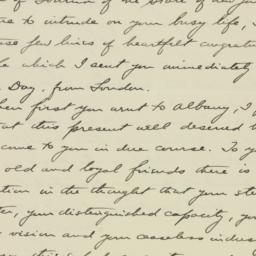 of Journal of the State of New
to intrude on your busy life,
few lines of heartfelt
which I sent you immediately
Day, from London.
first you went to Albany, I
at this present well deserved
come to you in due course. To
old and loyal friends there is
tion in the thought that your
your distinguished capacity,
vision and your ceaseless indus